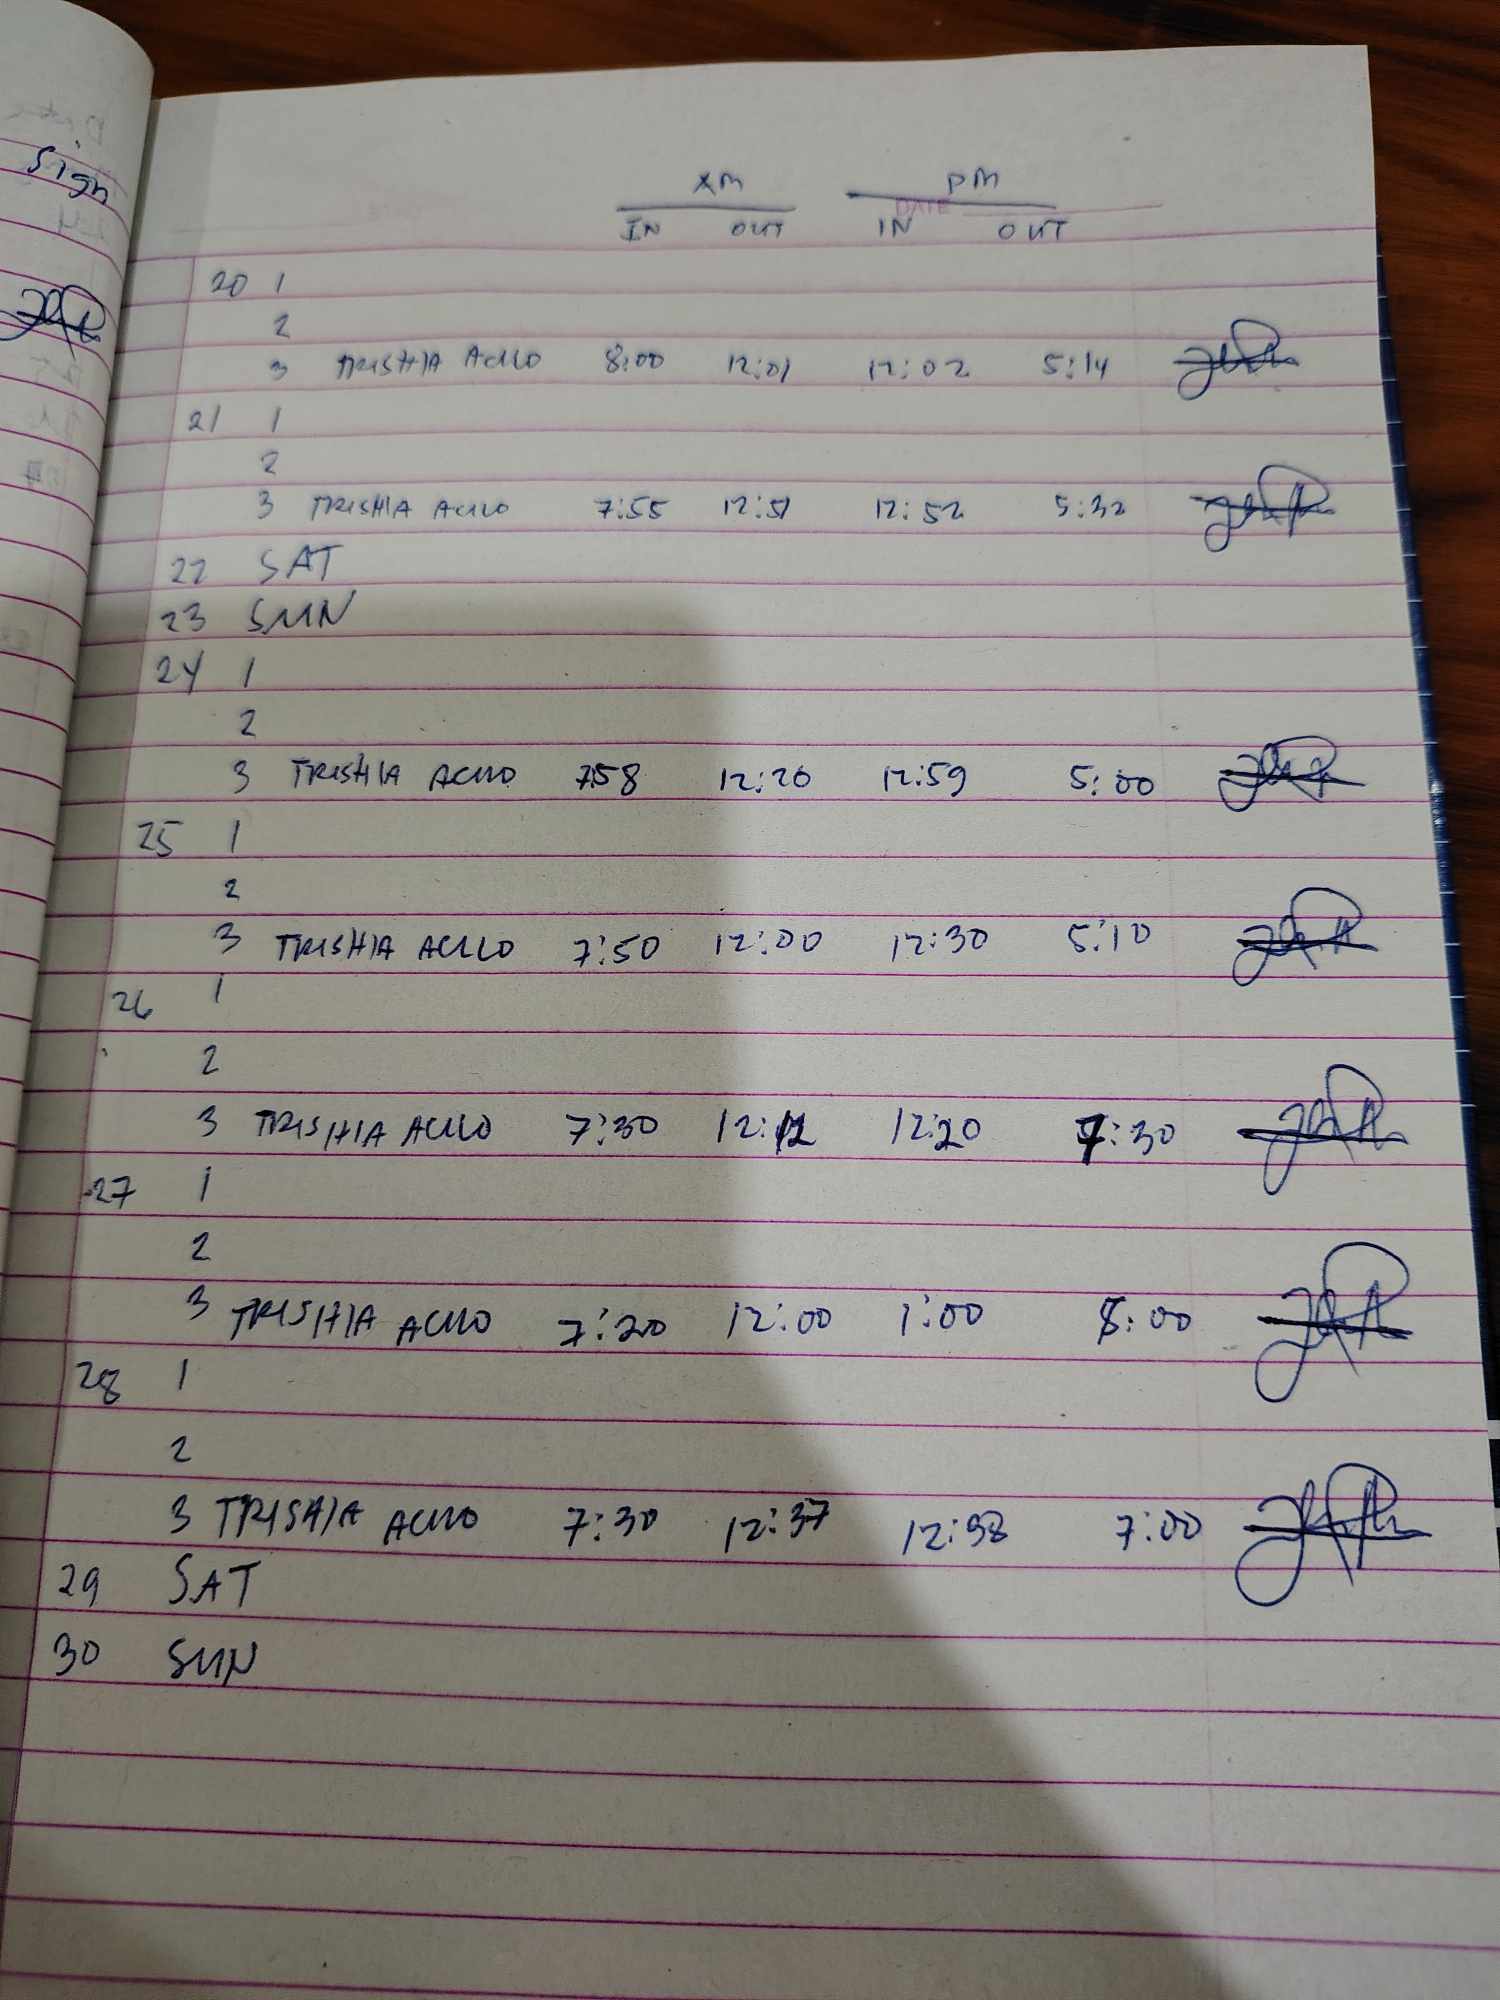 Sign
AM PM
DATE
IN OUT IN OUT
20 1
2
3 TRISHIA 8:00 12:01 12:02 5:14
21 1
2
3 TRISHIA 7:55 12:51 12:52 5:32
22 SAT
23 SUN
24 1
2
3 TRISHIA 758 12:20 12:59 5:00
25 1
2
3 TRISHIA 7:50 12:00 12:30 5:10
26 1
2
3 TRISHIA 7:30 12:12 12:20 7:30
27 1
2
3 TRISHIA 7:20 12:00 1:00 8:00
28 1
2
3 TRISHIA 7:30 12:37 12:38 7:00
29 SAT
30 SUN